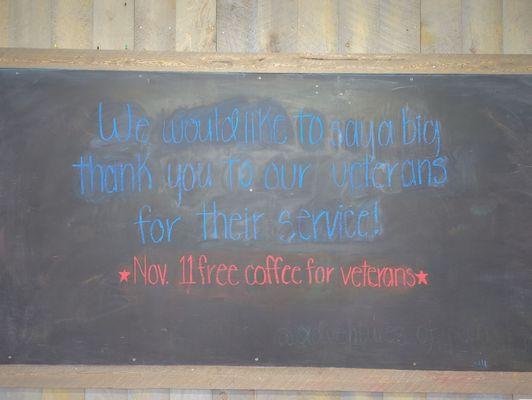 We would like to say a big
thank you to our veterans
for their service!
★Nov. 11 free coffee for veterans★